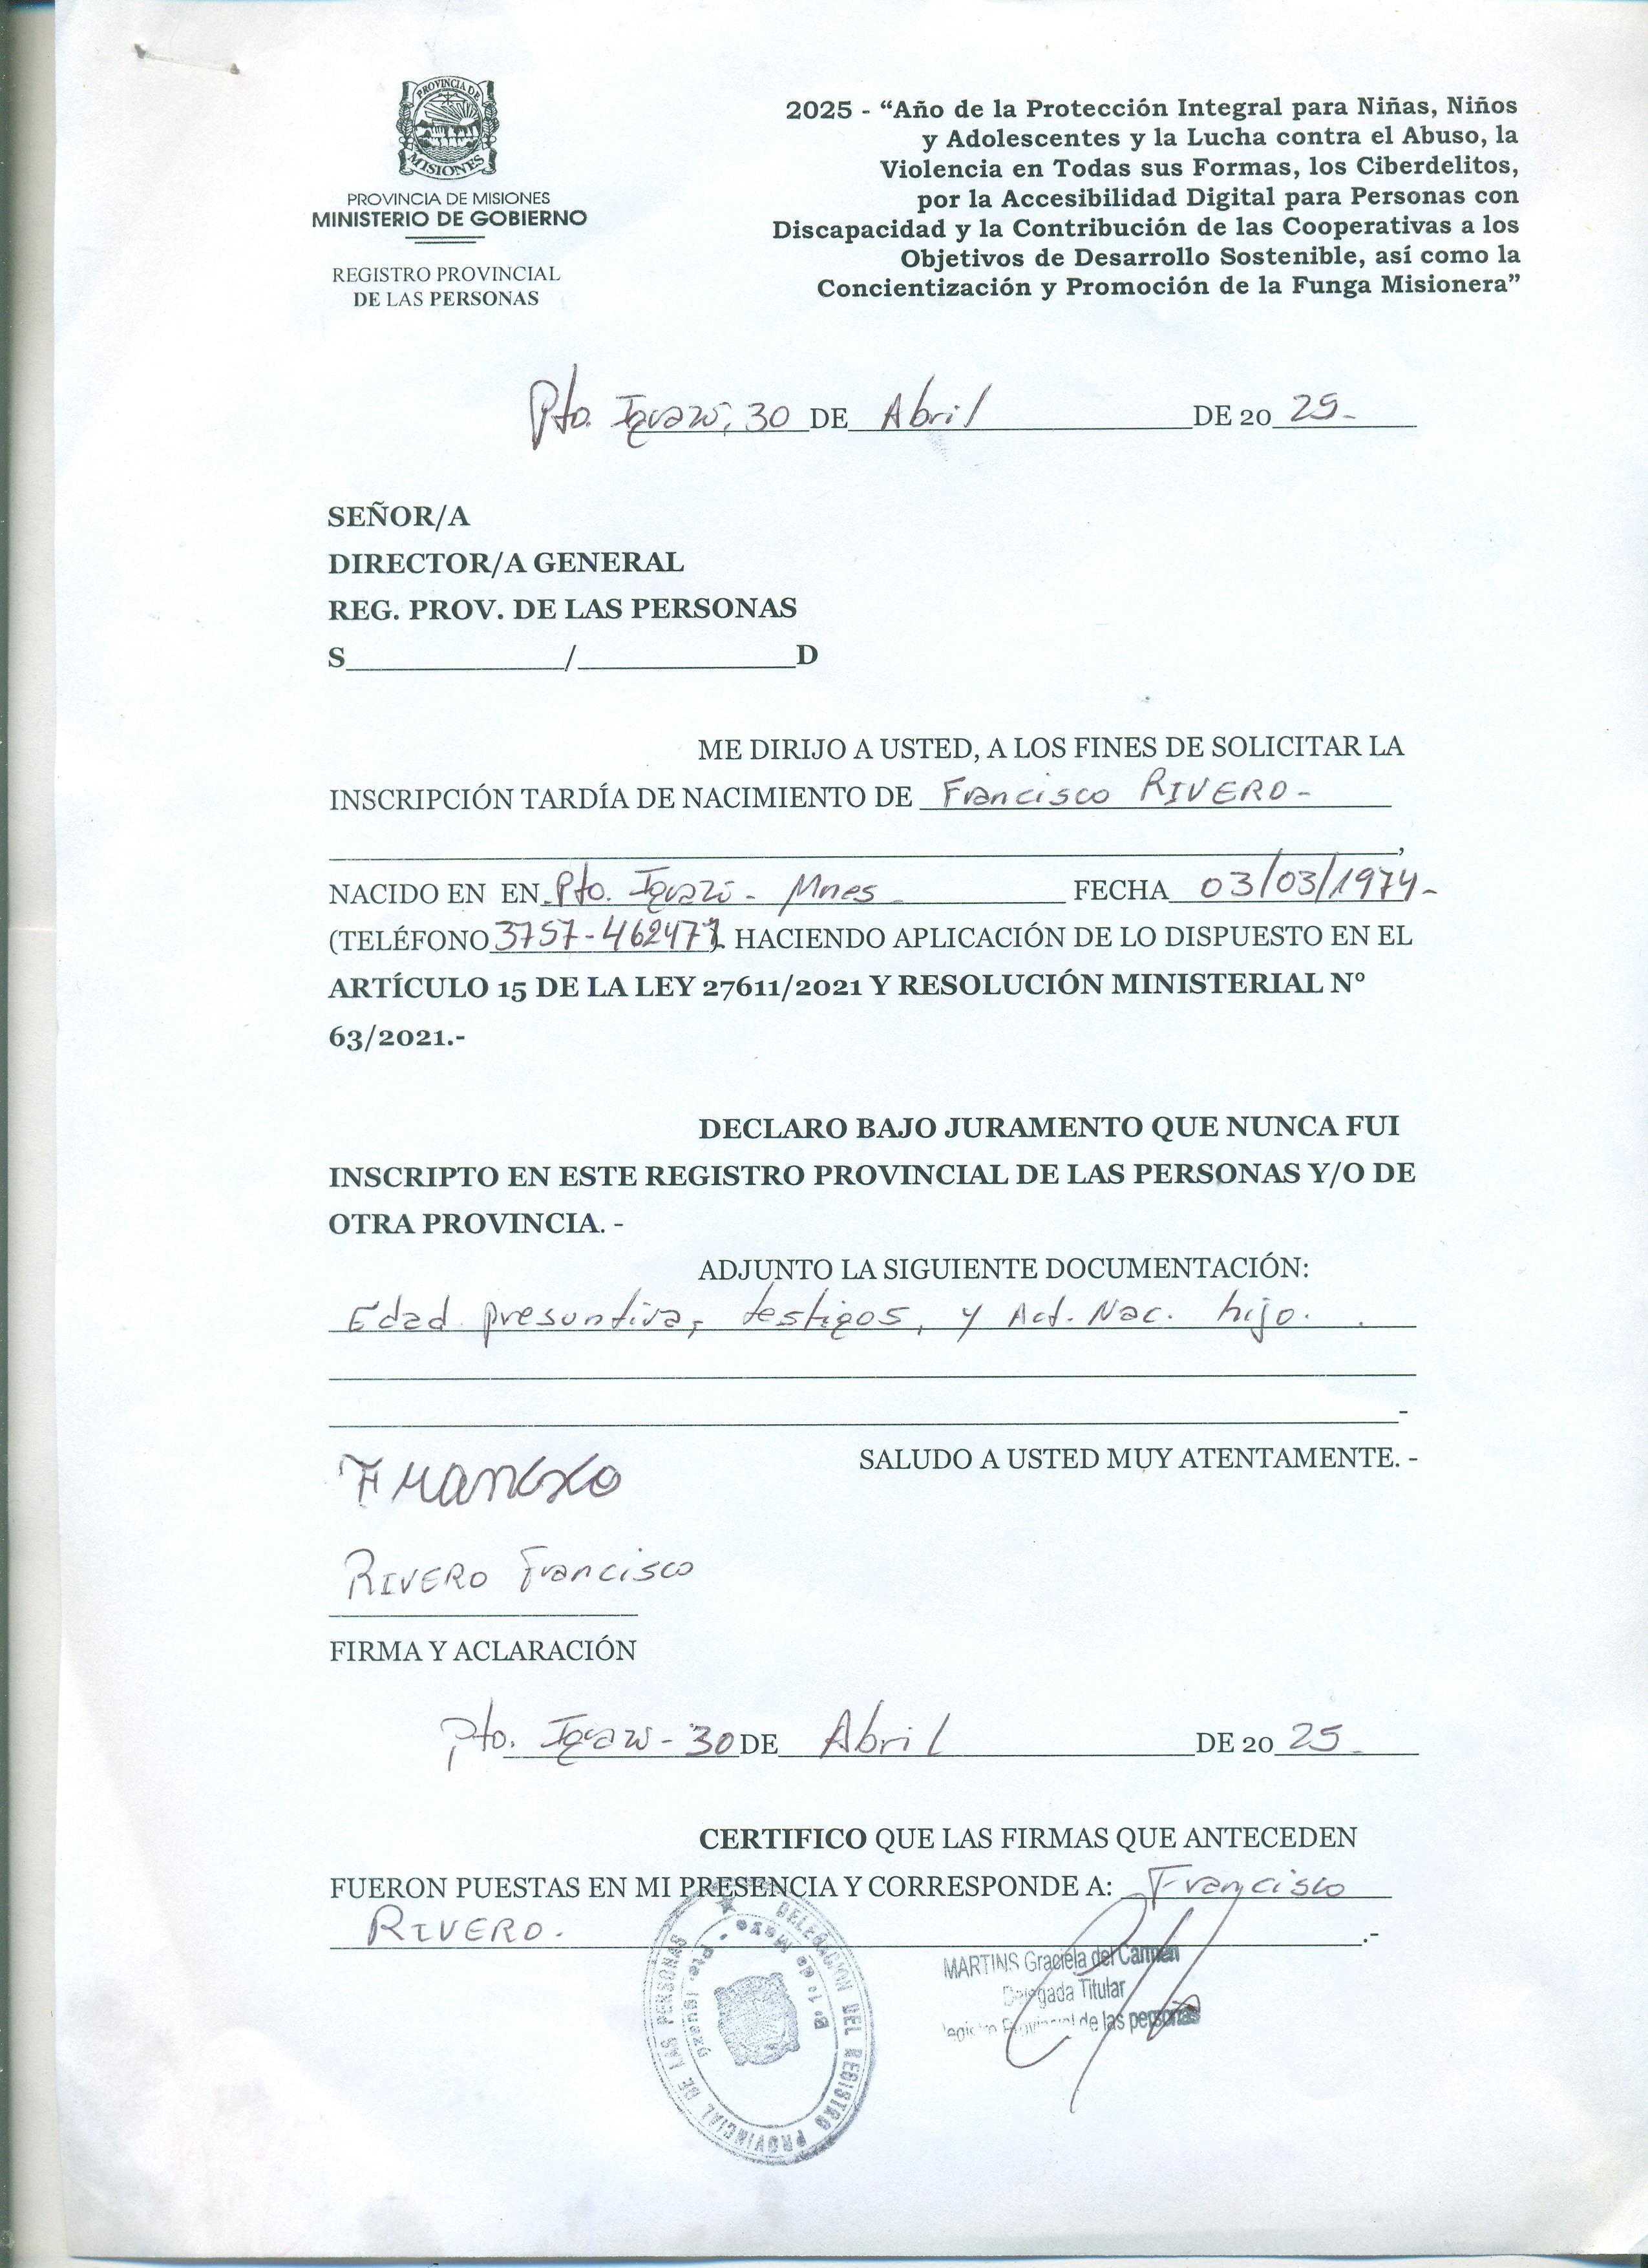 PROVINCIA DE
MISIONES
PROVINCIA DE MISIONES
MINISTERIO DE GOBIERNO
REGISTRO PROVINCIAL
DE LAS PERSONAS
2025 - “Año de la Protección Integral para Niñas, Niños
y Adolescentes y la Lucha contra el Abuso, la
Violencia en Todas sus Formas, los Ciberdelitos,
por la Accesibilidad Digital para Personas con
Discapacidad y la Contribución de las Cooperativas a los
Objetivos de Desarrollo Sostenible, así como la
Concientización y Promoción de la Funga Misionera”
Pto. Iguazú, 30 DE Abril DE 20 25.-
SEÑOR/A
DIRECTOR/A GENERAL
REG. PROV. DE LAS PERSONAS
S______________/______________D
ME DIRIJO A USTED, A LOS FINES DE SOLICITAR LA
INSCRIPCIÓN TARDÍA DE NACIMIENTO DE Francisco RIVERO-
,
NACIDO EN EN Pto. Iguazú - Mnes - FECHA 03/03/1974-
(TELÉFONO 3757-462477). HACIENDO APLICACIÓN DE LO DISPUESTO EN EL
ARTÍCULO 15 DE LA LEY 27611/2021 Y RESOLUCIÓN MINISTERIAL Nº
63/2021.-
DECLARO BAJO JURAMENTO QUE NUNCA FUI
INSCRIPTO EN ESTE REGISTRO PROVINCIAL DE LAS PERSONAS Y/O DE
OTRA PROVINCIA. -
ADJUNTO LA SIGUIENTE DOCUMENTACIÓN:
Edad presuntiva, testigos, y Act. Nac. hijo.
-
SALUDO A USTED MUY ATENTAMENTE. -
Francisco
RIVERO Francisco
FIRMA Y ACLARACIÓN
Pto. Iguazú - 30 DE Abril DE 20 25-
CERTIFICO QUE LAS FIRMAS QUE ANTECEDEN
FUERON PUESTAS EN MI PRESENCIA Y CORRESPONDE A: Francisco
RIVERO. .-
DELEGACION DEL REGISTRO PROVINCIAL DE LAS PERSONAS
B. 1º de Mayo - Pto. Iguazú
MARTINS Graciela del Carmen
Delegada Titular
Registro Provincial de las personas